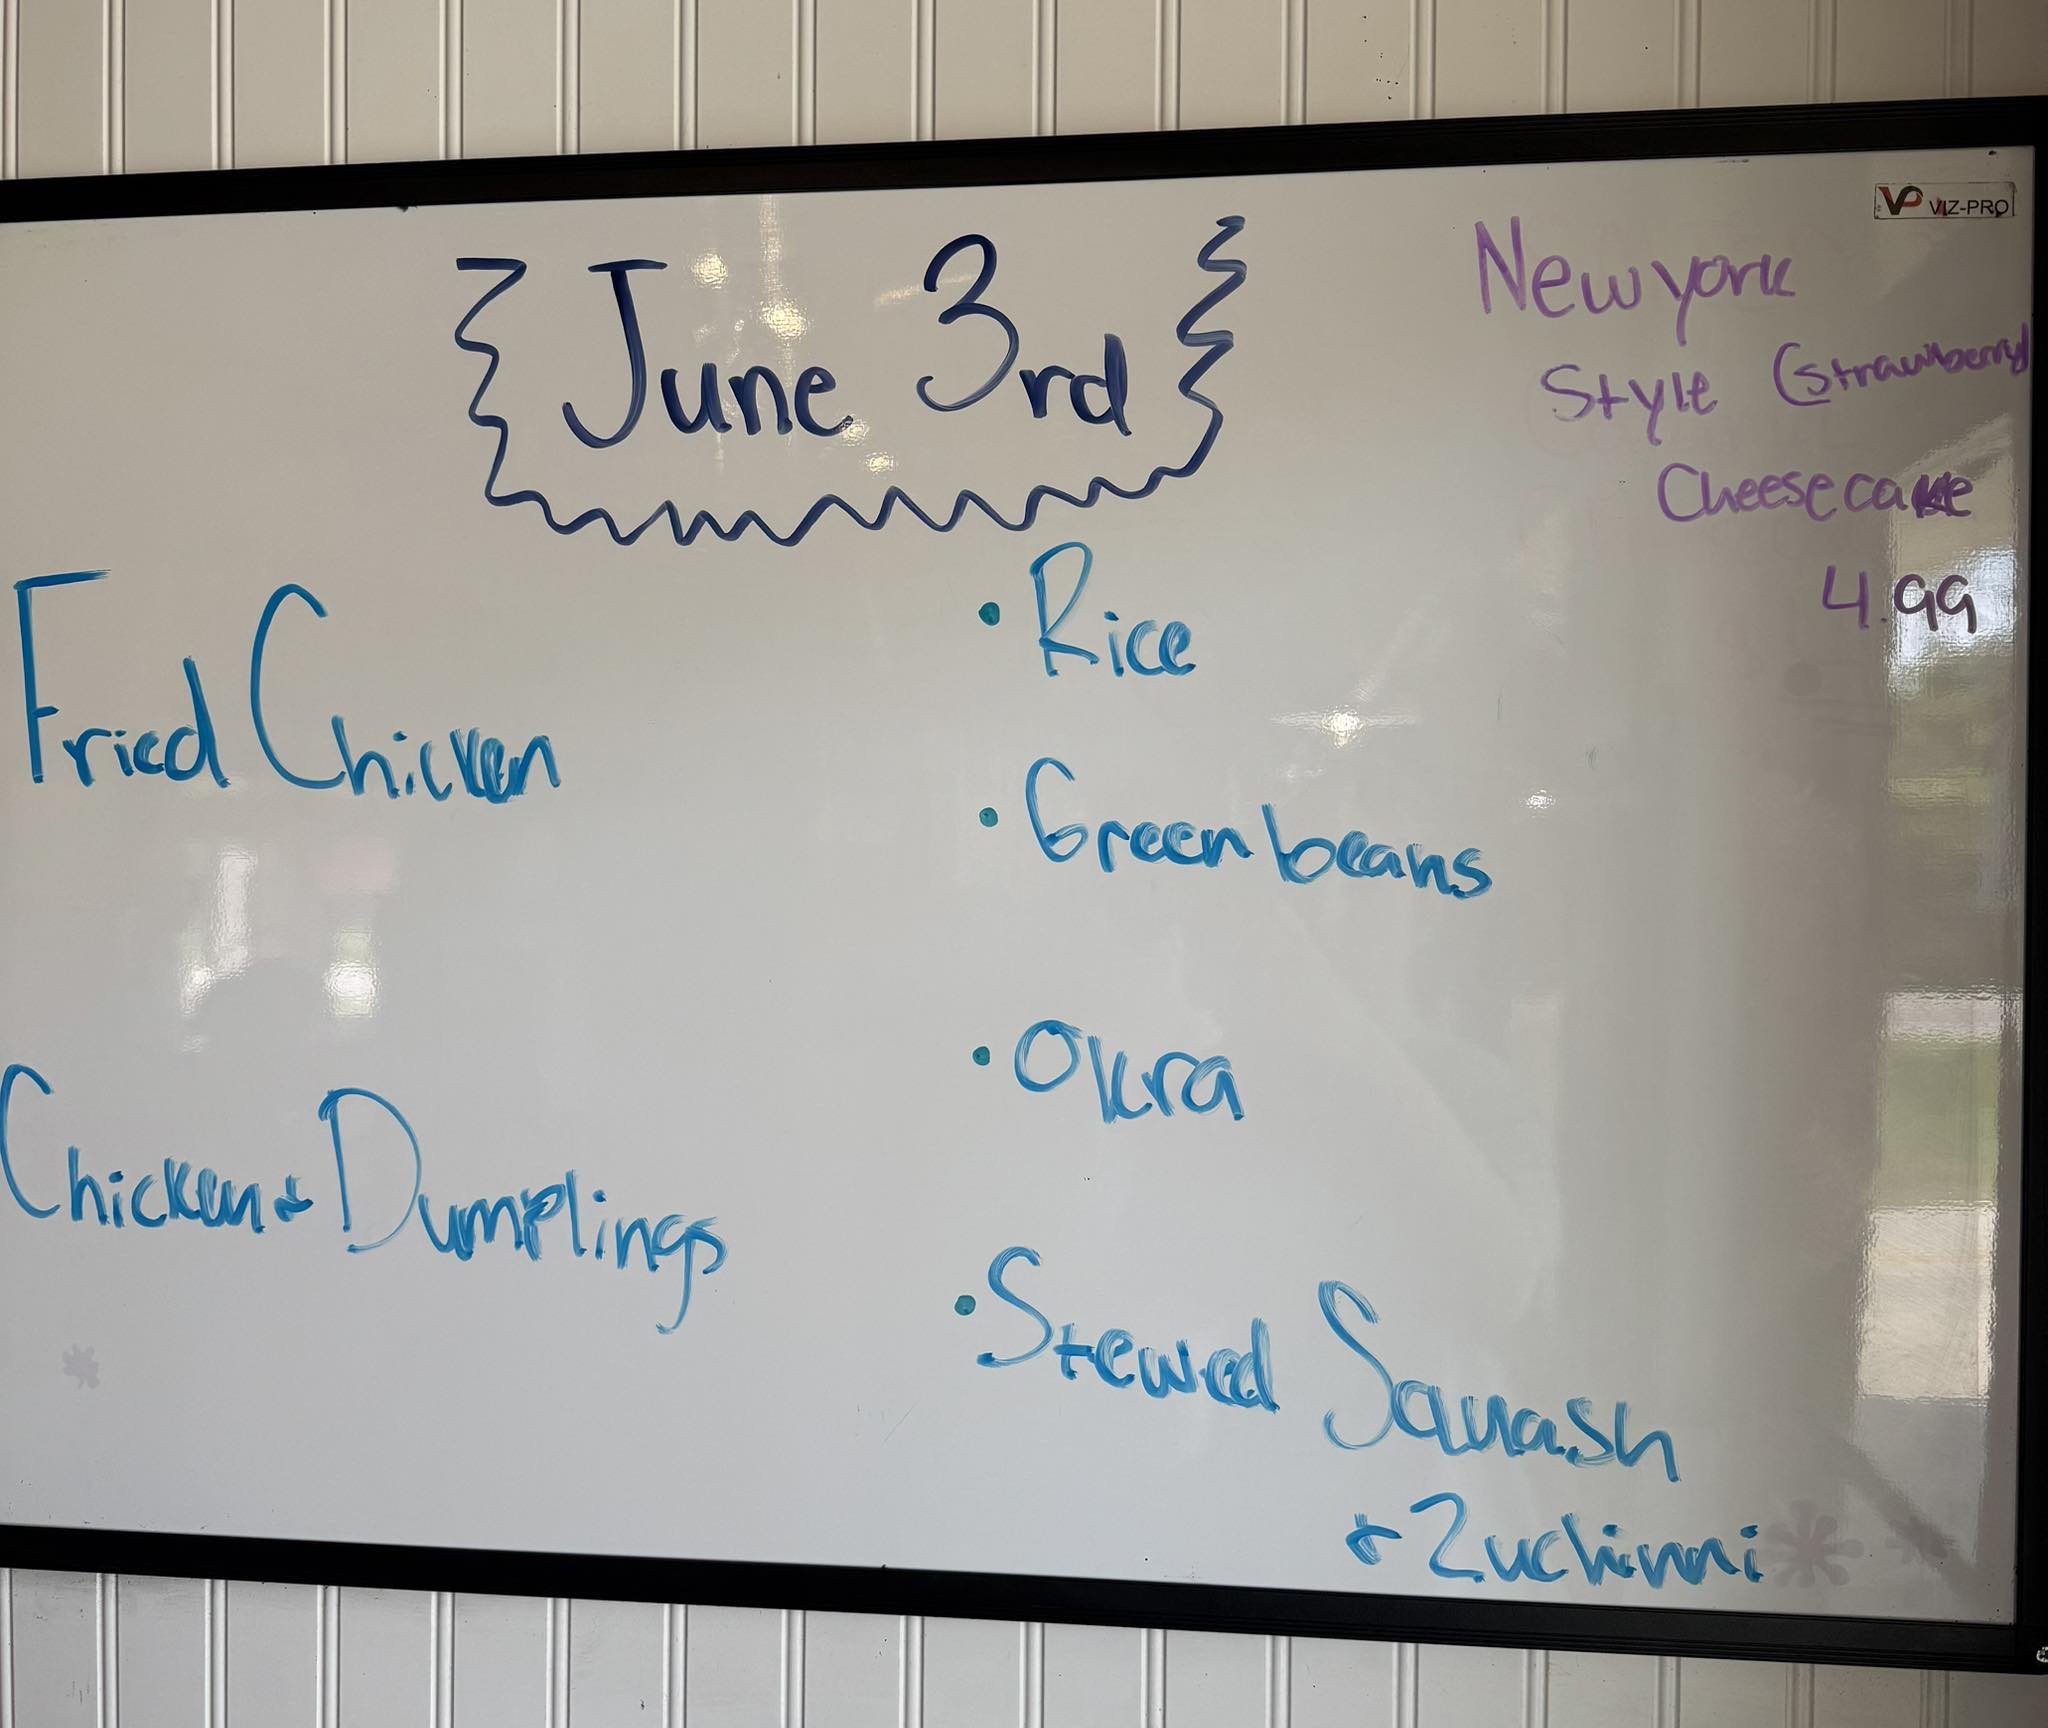 VP VIZ-PRO
{ June 3rd }
New york
Style (strawberry)
Cheesecake
4.99
Fried Chicken
Chicken & Dumplings
• Rice
• Green beans
• Okra
• Stewed Squash
& Zuchinni